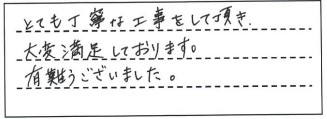 とても丁寧な工事をして頂き、
大変満足しております。
有難うございました。